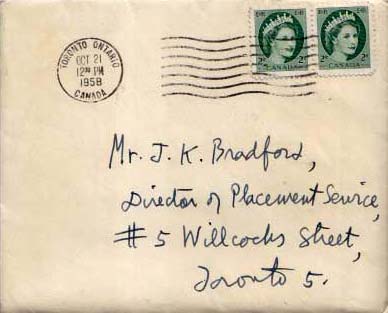 TORONTO ONTARIO
OCT 21
12 PM
1958
CANADA
2 2
CANADA
2 2
CANADA
Mr. J. K. Bradford,
Director of Placement Service,
# 5 Willcocks Street,
Toronto 5.